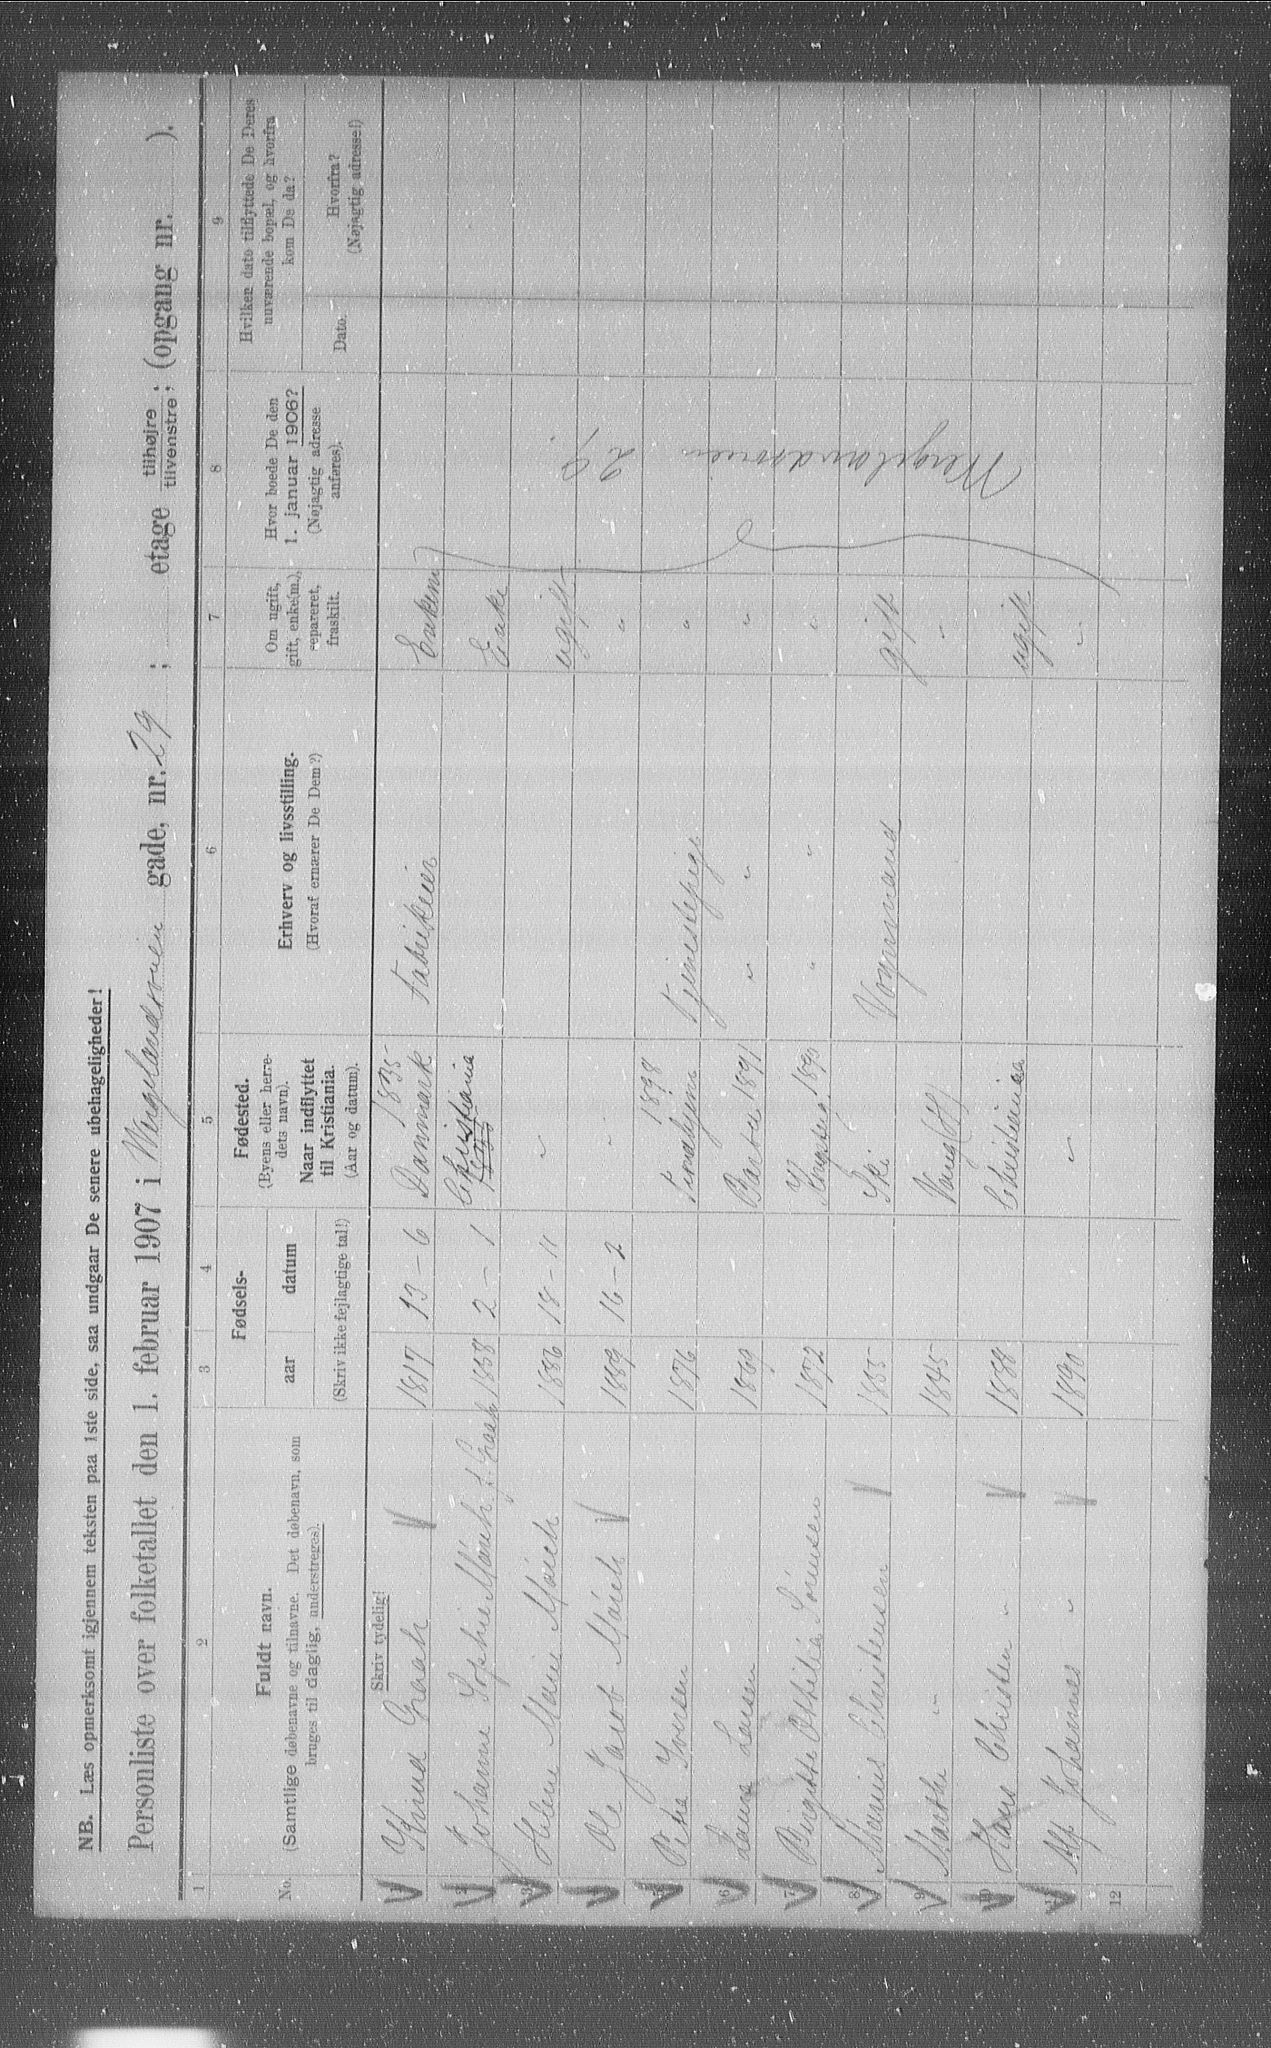 NB. Læs opmerksomt igjennem teksten paa 1ste side, saa undgaar De senere ubehageligheder!
Personliste over folketallet den 1. februar 1907 i Wergelandsveien gade, nr. 29 ; etage tilhøjre tilvenstre; (opgang nr. ).
1 2 3 4 5 6 7 8 9
No.
Fuldt navn.
(Samtlige døbenavne og tilnavne. Det døbenavn, som
bruges til daglig, understreges).
Fødsels-
aar datum
(Skriv ikke fejlagtige tal!)
Fødested.
(Byens eller herre-
dets navn).
Naar indflyttet
til Kristiania.
(Aar og datum).
Erhverv og livsstilling.
(Hvoraf ernærer De Dem?)
Om ugift,
gift, enke(m.),
separeret,
fraskilt.
Hvor boede De den
1. januar 1906?
(Nøjagtig adresse
anføres).
Hvilken dato tilflyttede De Deres
nuværende bopæl, og hvorfra
kom De da?
Dato.
Hvorfra?
(Nøjagtig adresse!)
Skriv tydelig!
Knud Graah 1817 13 - 6 1835 Danmark Fabrikeier Enkem
2 Johanne Sophie Mörch f. Graah 1858 2 - 1 Christiania Enke
3 Helene Marie Mörch 1886 18 - 11 " ugift
Ole Jacob Mörch 1889 16 - 2 " "
5 Petra Iversen 1876 1898 Trondhjem Tjenestepige "
6 Laura Larsen 1869 1891 " " "
7 Birgitte Othilia 1872 1890 " " "
8 Marius Christensen 1855 Ski Vognmand gift
9 Marthe " 1845 Vang (H) "
10 Hans Christian " 1888 Christiania ugift
11 Alf Johannes " 1890 " "
12
Wergelandsveien
29